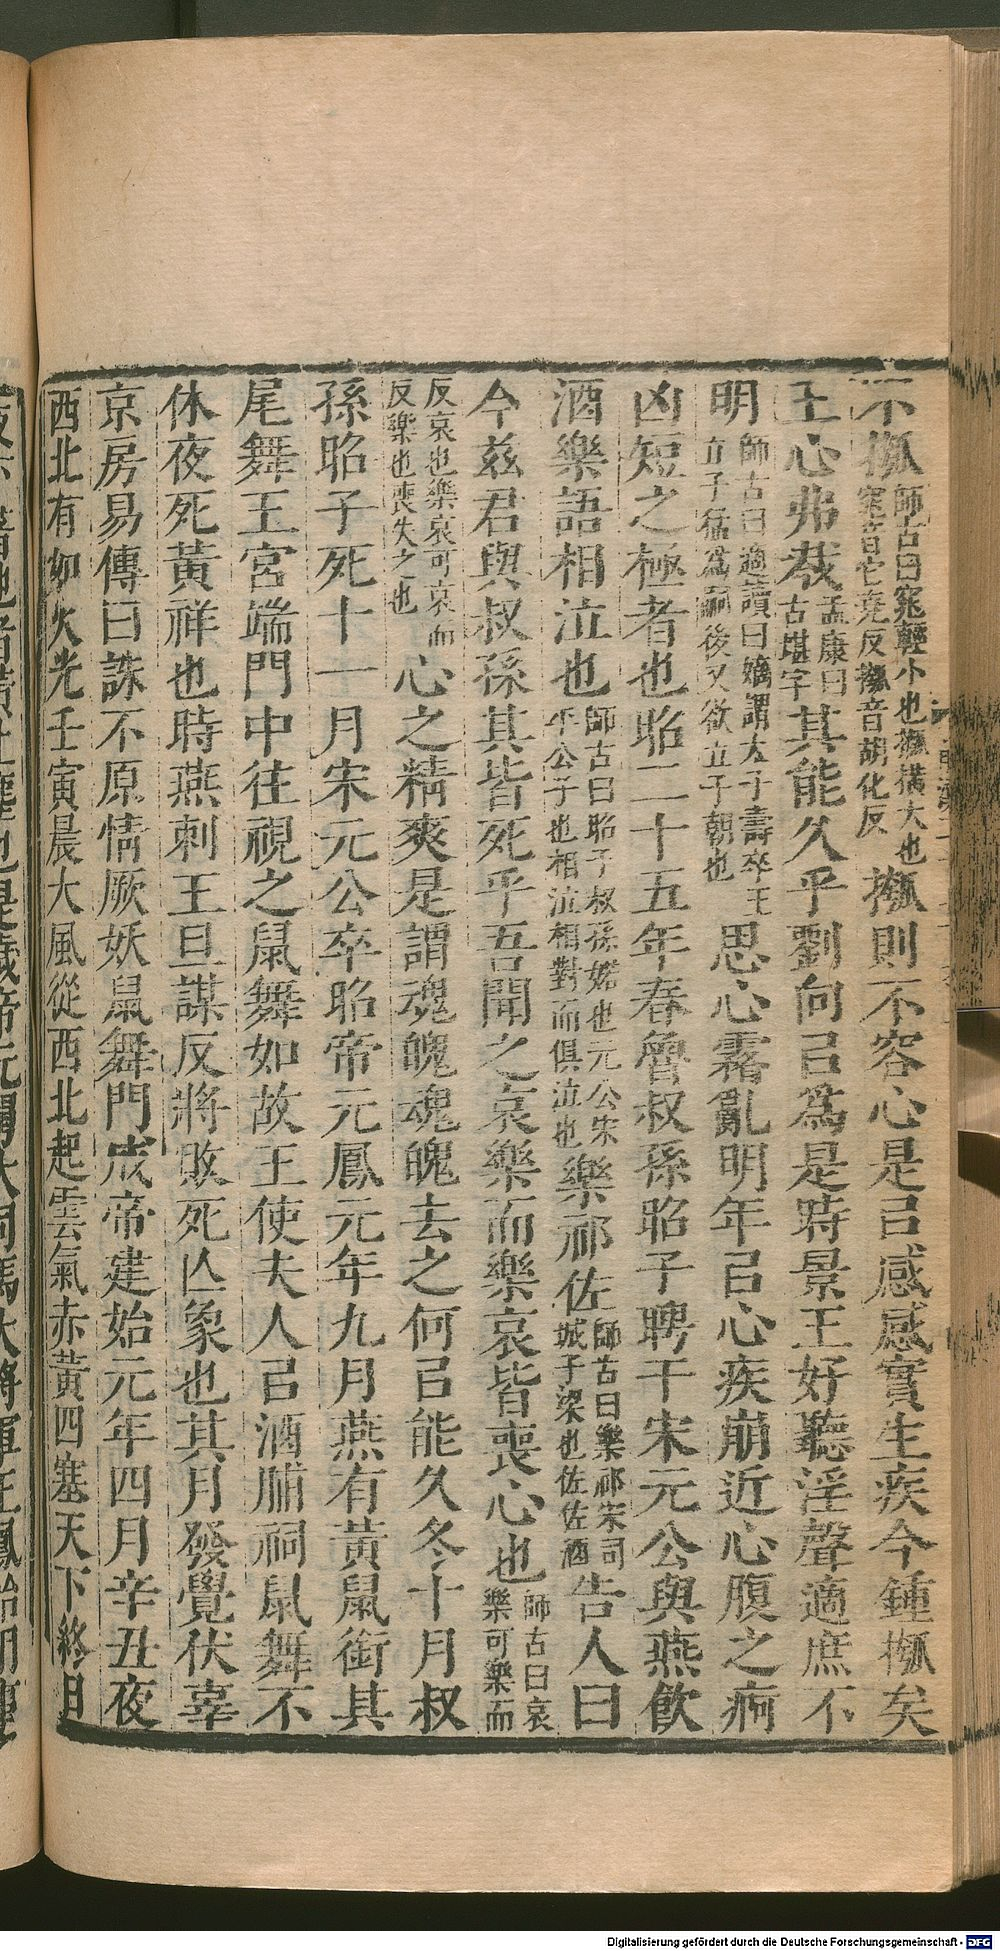 不摦師古曰窕輕小也摦橫大也
窕音它堯反摦音胡化反摦則不容心是㠯感感實生疾今鍾摦矣
王心弗㦲孟康曰
古堪字其能久乎劉向㠯爲是時景王好聽淫聲適庶不
明師古曰適讀曰嫡謂太子壽卒王
立子猛爲嗣後又欲立子朝也思心霿亂明年㠯心疾崩近心腹之痾
凶短之極者也昭二十五年春魯叔孫昭子聘于宋元公與燕飲
酒樂語相泣也師古曰昭子叔孫婼也元公宋
平公子也相泣相對而俱泣也樂祁佐師古曰樂祁宋司
城子梁也佐佐酒告人曰
今茲君與叔孫其皆死乎吾聞之哀樂而樂哀皆喪心也師古曰哀
樂可樂而
反哀也樂哀可哀而
反樂也喪失之也心之精爽是謂魂魄魂魄去之何㠯能久冬十月叔
孫昭子死十一月宋元公卒昭帝元鳳元年九月燕有黃鼠銜其
尾舞王宮端門中往視之鼠舞如故王使夫人㠯酒脯祠鼠舞不
休夜死黃祥也時燕剌王旦謀反將敗死亾象也其月發覺伏辜
京房易傳曰誅不原情厥妖鼠舞門成帝建始元年四月辛丑夜
西北有如火光壬寅晨大風從西北起雲氣赤黃四塞天下終日
Digitalisierung gefördert durch die Deutsche Forschungsgemeinschaft - DFG